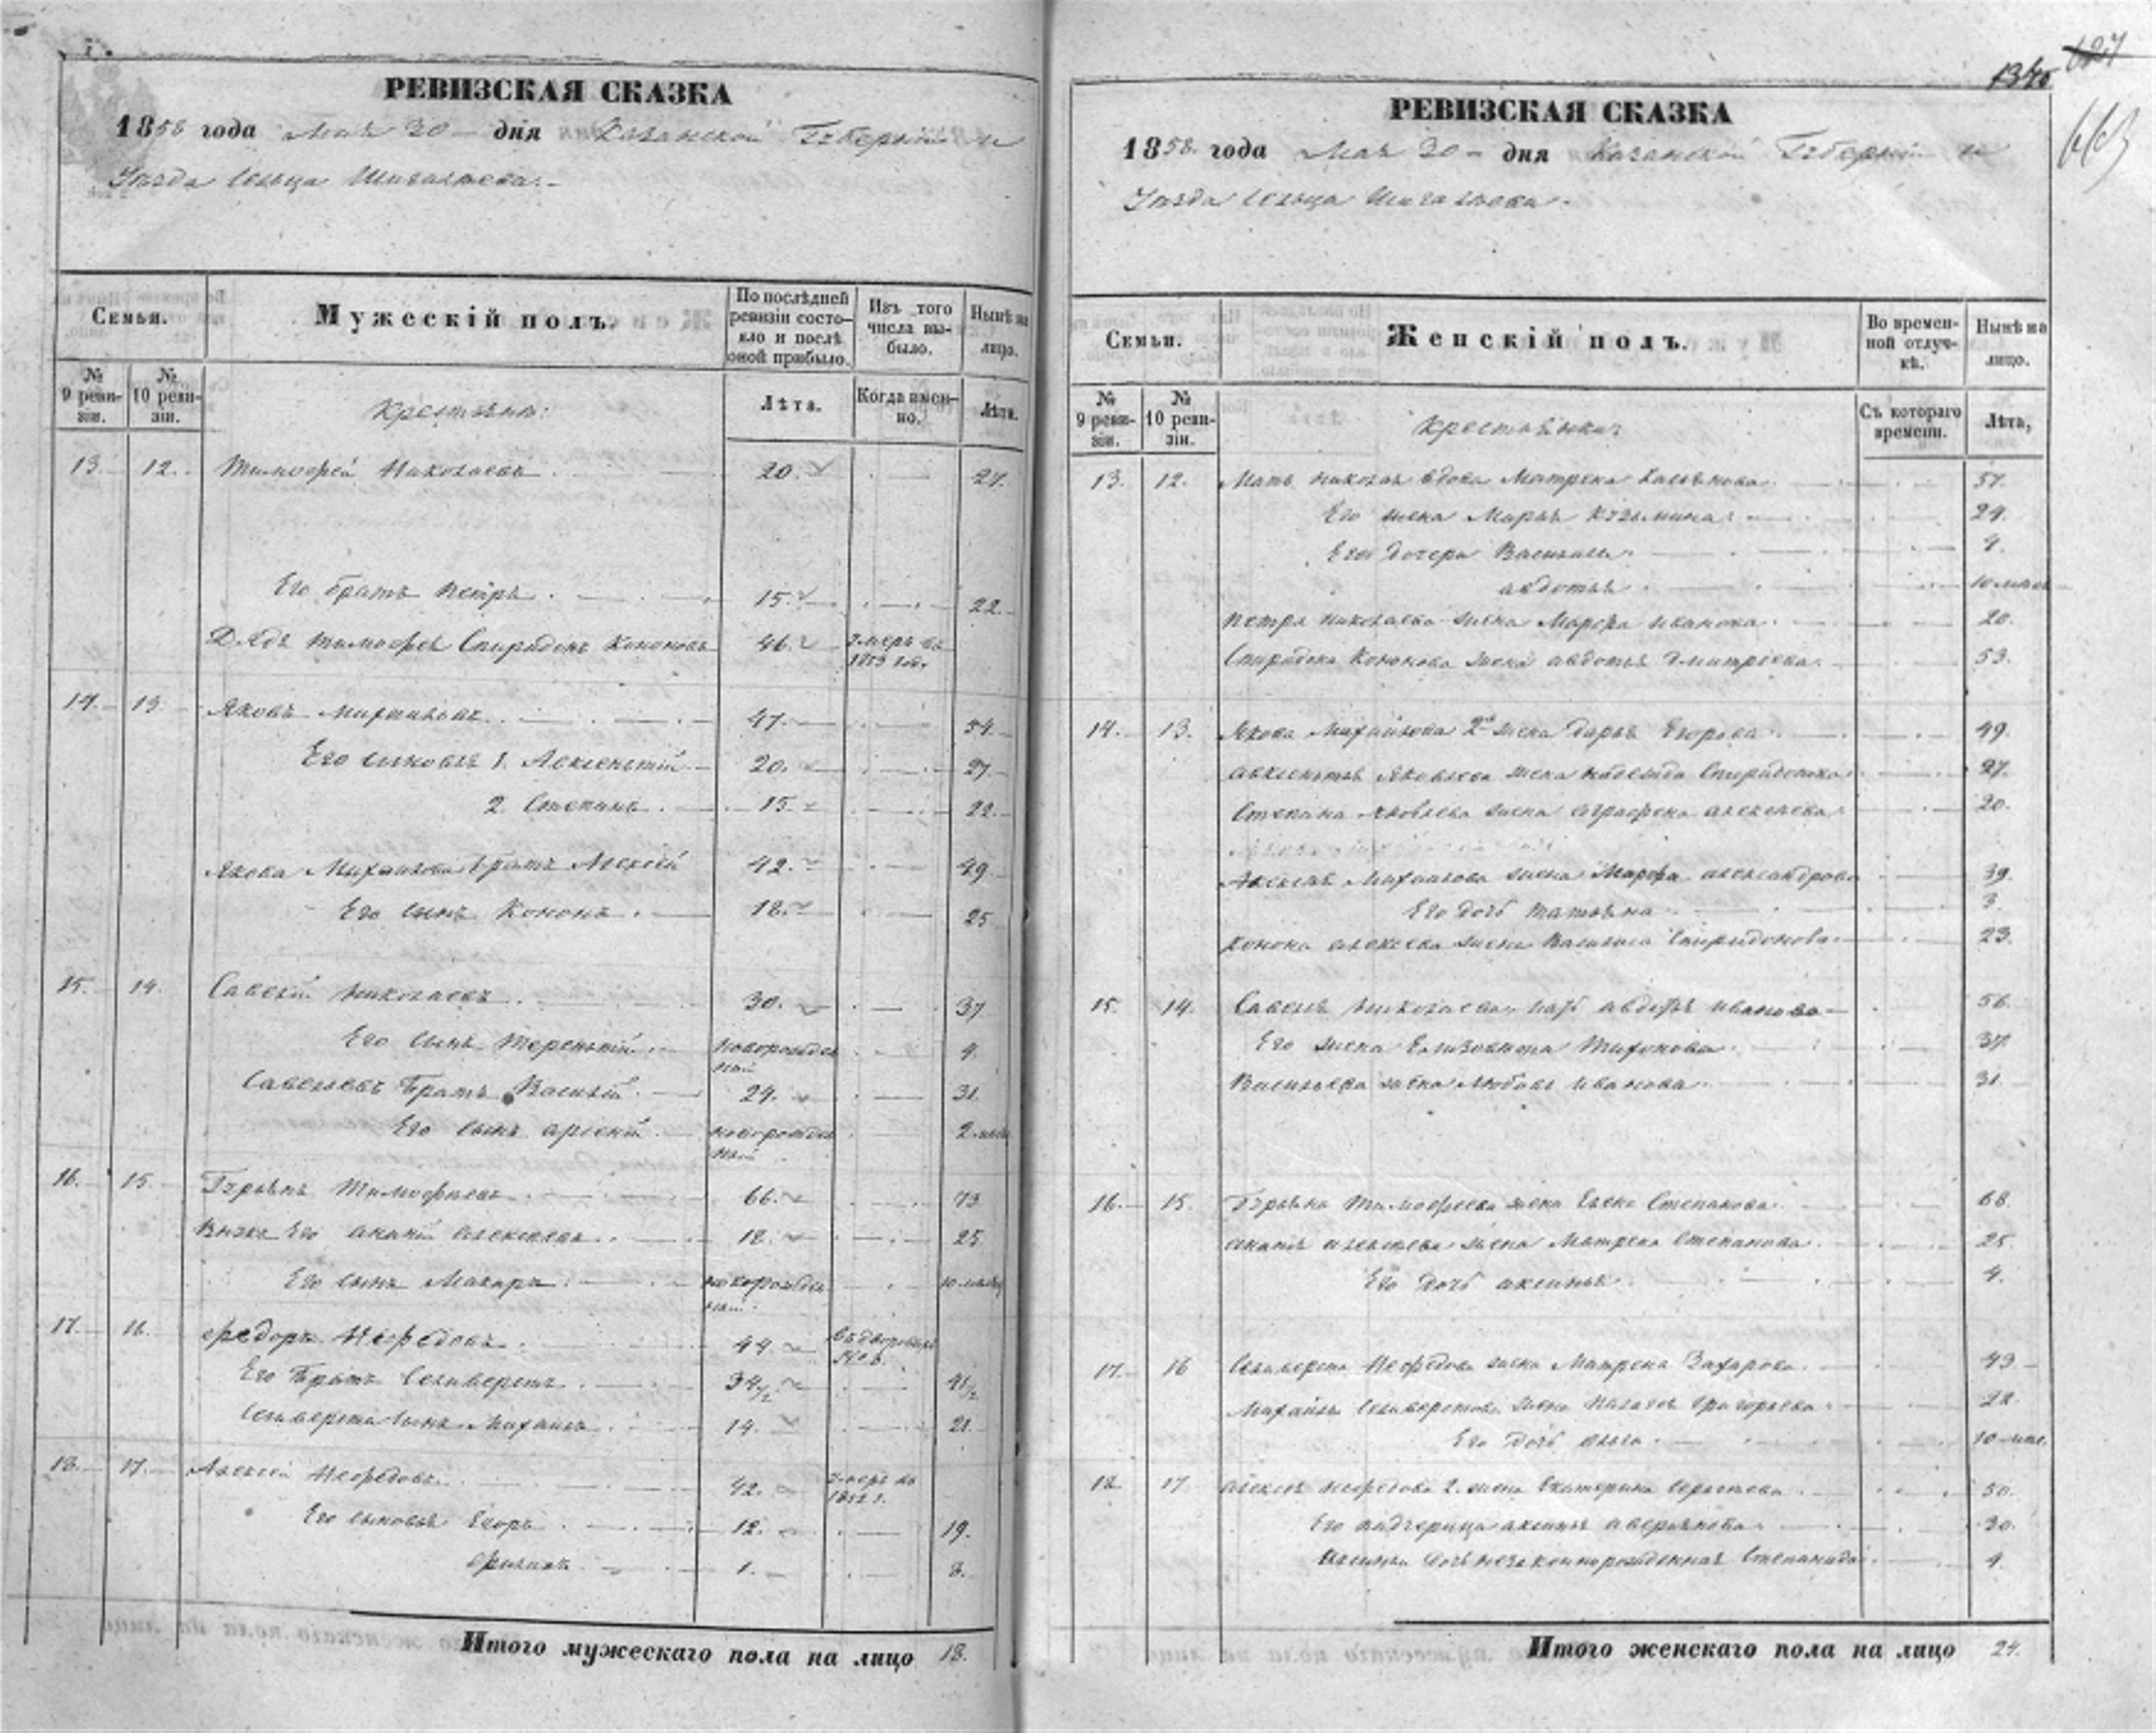 РЕВИЗСКАЯ СКАЗКА
1858 года Мая 30 дня Казанской Губернiи и
Уѣзда Сельца Шигалѣева.
Семьи.
Мужескiй полъ.
По послѣдней ревизiи состояло и послѣ оной прибыло.
Изъ того числа выбыло.
Нынѣ на лицо.
№ 9 ревизiи.
№ 10 ревизiи.
Крестьяне:
Лѣта.
Когда именно.
Лѣта.
13. 12. Тимофей Николаевъ 20. 27.
Его братъ Петръ 15. 22.
Дядя Тимофея Спиридонъ Кононовъ 46. умеръ въ 1853 год.
14. 13. Яковъ Михайловъ 47. 54.
Его сыновья 1. Авксентiй 20. 27
2 Степанъ 15 22.
Якова Михайлова братъ Алексей 42. 49
Его сынъ Кононъ 18. 25
15. 14. Савелiй Николаевъ 30. 37
Его сынъ Терентiй новорожденный 4.
Савельевъ братъ Василiй 24. 31.
Его сынъ Арсенiй новорожденный 2 мѣся
16. 15. Гурьянъ Тимофеевъ 66. 73
Внукъ Его Ананiй Алексеевъ 18. 25
Его сынъ Макаръ новорожденный 10 мѣсяц
17. 16. Федоръ Нефедовъ 44 въ дворовые
Его братъ Селиверстъ 34 1/2 41 1/2
Селиверста сынъ Михаилъ 14. 21.
18. 17. Алексей Нефедовъ 42. умеръ въ 1852 г.
Его сыновья Егоръ 12. 19.
1. 8.
Итого мужескаго пола на лицо 18.
1346 627
663
РЕВИЗСКАЯ СКАЗКА
1858 года Мая 30 дня Казанской Губернiи и
Уѣзда Сельца Шигалѣева.
Семьи.
Женскiй полъ.
Во временной отлучкѣ.
Нынѣ на лицо.
№ 9 ревизiи.
№ 10 ревизiи.
Крестьянки:
Съ котораго времени.
Лѣта,
13. 12. Мать вдова Матрена Касьянова 57.
Его жена Марья Кузьмина 29.
Его дочери Василиса 4.
Авдотья 10 мѣсяц
Петра Николаева жена Марфа Иванова 20.
Спиридона Кононова жена Авдотья Дмитрiева 53.
14. 13. Якова Михайлова 2я жена Дарья Егорова 49.
Авксентья Яковлева жена Надежда Спиридонова 27.
Степана Яковлева жена Аграфена Алексеева 20.
Алексея Михайлова жена Марфа Александрова 39.
Его дочь Татьяна 3.
Конона Алексеева жена Василиса Спиридонова 23.
15. 14. Савелья Николаева мать Авдотья Иванова 56.
Его жена Елизавета Тихонова 37.
Васильева жена Любовь Иванова 31.
16. 15. Гурьяна Тимофеева жена Елена Степанова 68
Ананья Алексеева жена Матрена Степанова 25
Его дочь Аксинья 4.
17. 16 Селиверста Нефедова жена Матрена Захарова 43
Михайлы Селиверстова жена Палагея Григорьева 22.
Его дочь Ольга 10 мѣс.
18 17 Алексея Нефедова 2. жена Екатерина Сергеева 50.
Его падчерица Аксинья Аверьянова 30.
Аксиньи дочь незаконнорожденная Степанида 4.
Итого женскаго пола на лицо 24.